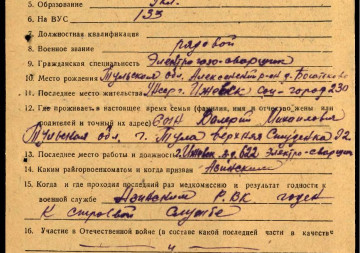 5. Образование 9кл.
6. На ВУС 133
7. Должностная квалификация
8. Военное звание рядовой
9. Гражданская специальность Электрогазо-сварщик
10. Место рождения Тульская обл, р-он д.
11. Последнее место жительства Ижевск Соц-город 230
12. Где проживает в настоящее время семья (фамилия, имя и отчество жены или
родителей и точный адрес) Валерий Михайлович
Тульская обл, г. Тула верхняя Студенка 92
13. Последнее место работы и должность г. Ижевск п.я. 622 Электро-сварщик
14. Каким райгорвоенкоматом и когда призван Азинским
15. Когда и где проходил последний раз медкомиссию и результат годности к
военной службе Азинский РВК годен
к строевой службе
16. Участие в Отечественной войне (в составе какой последней части в качестве